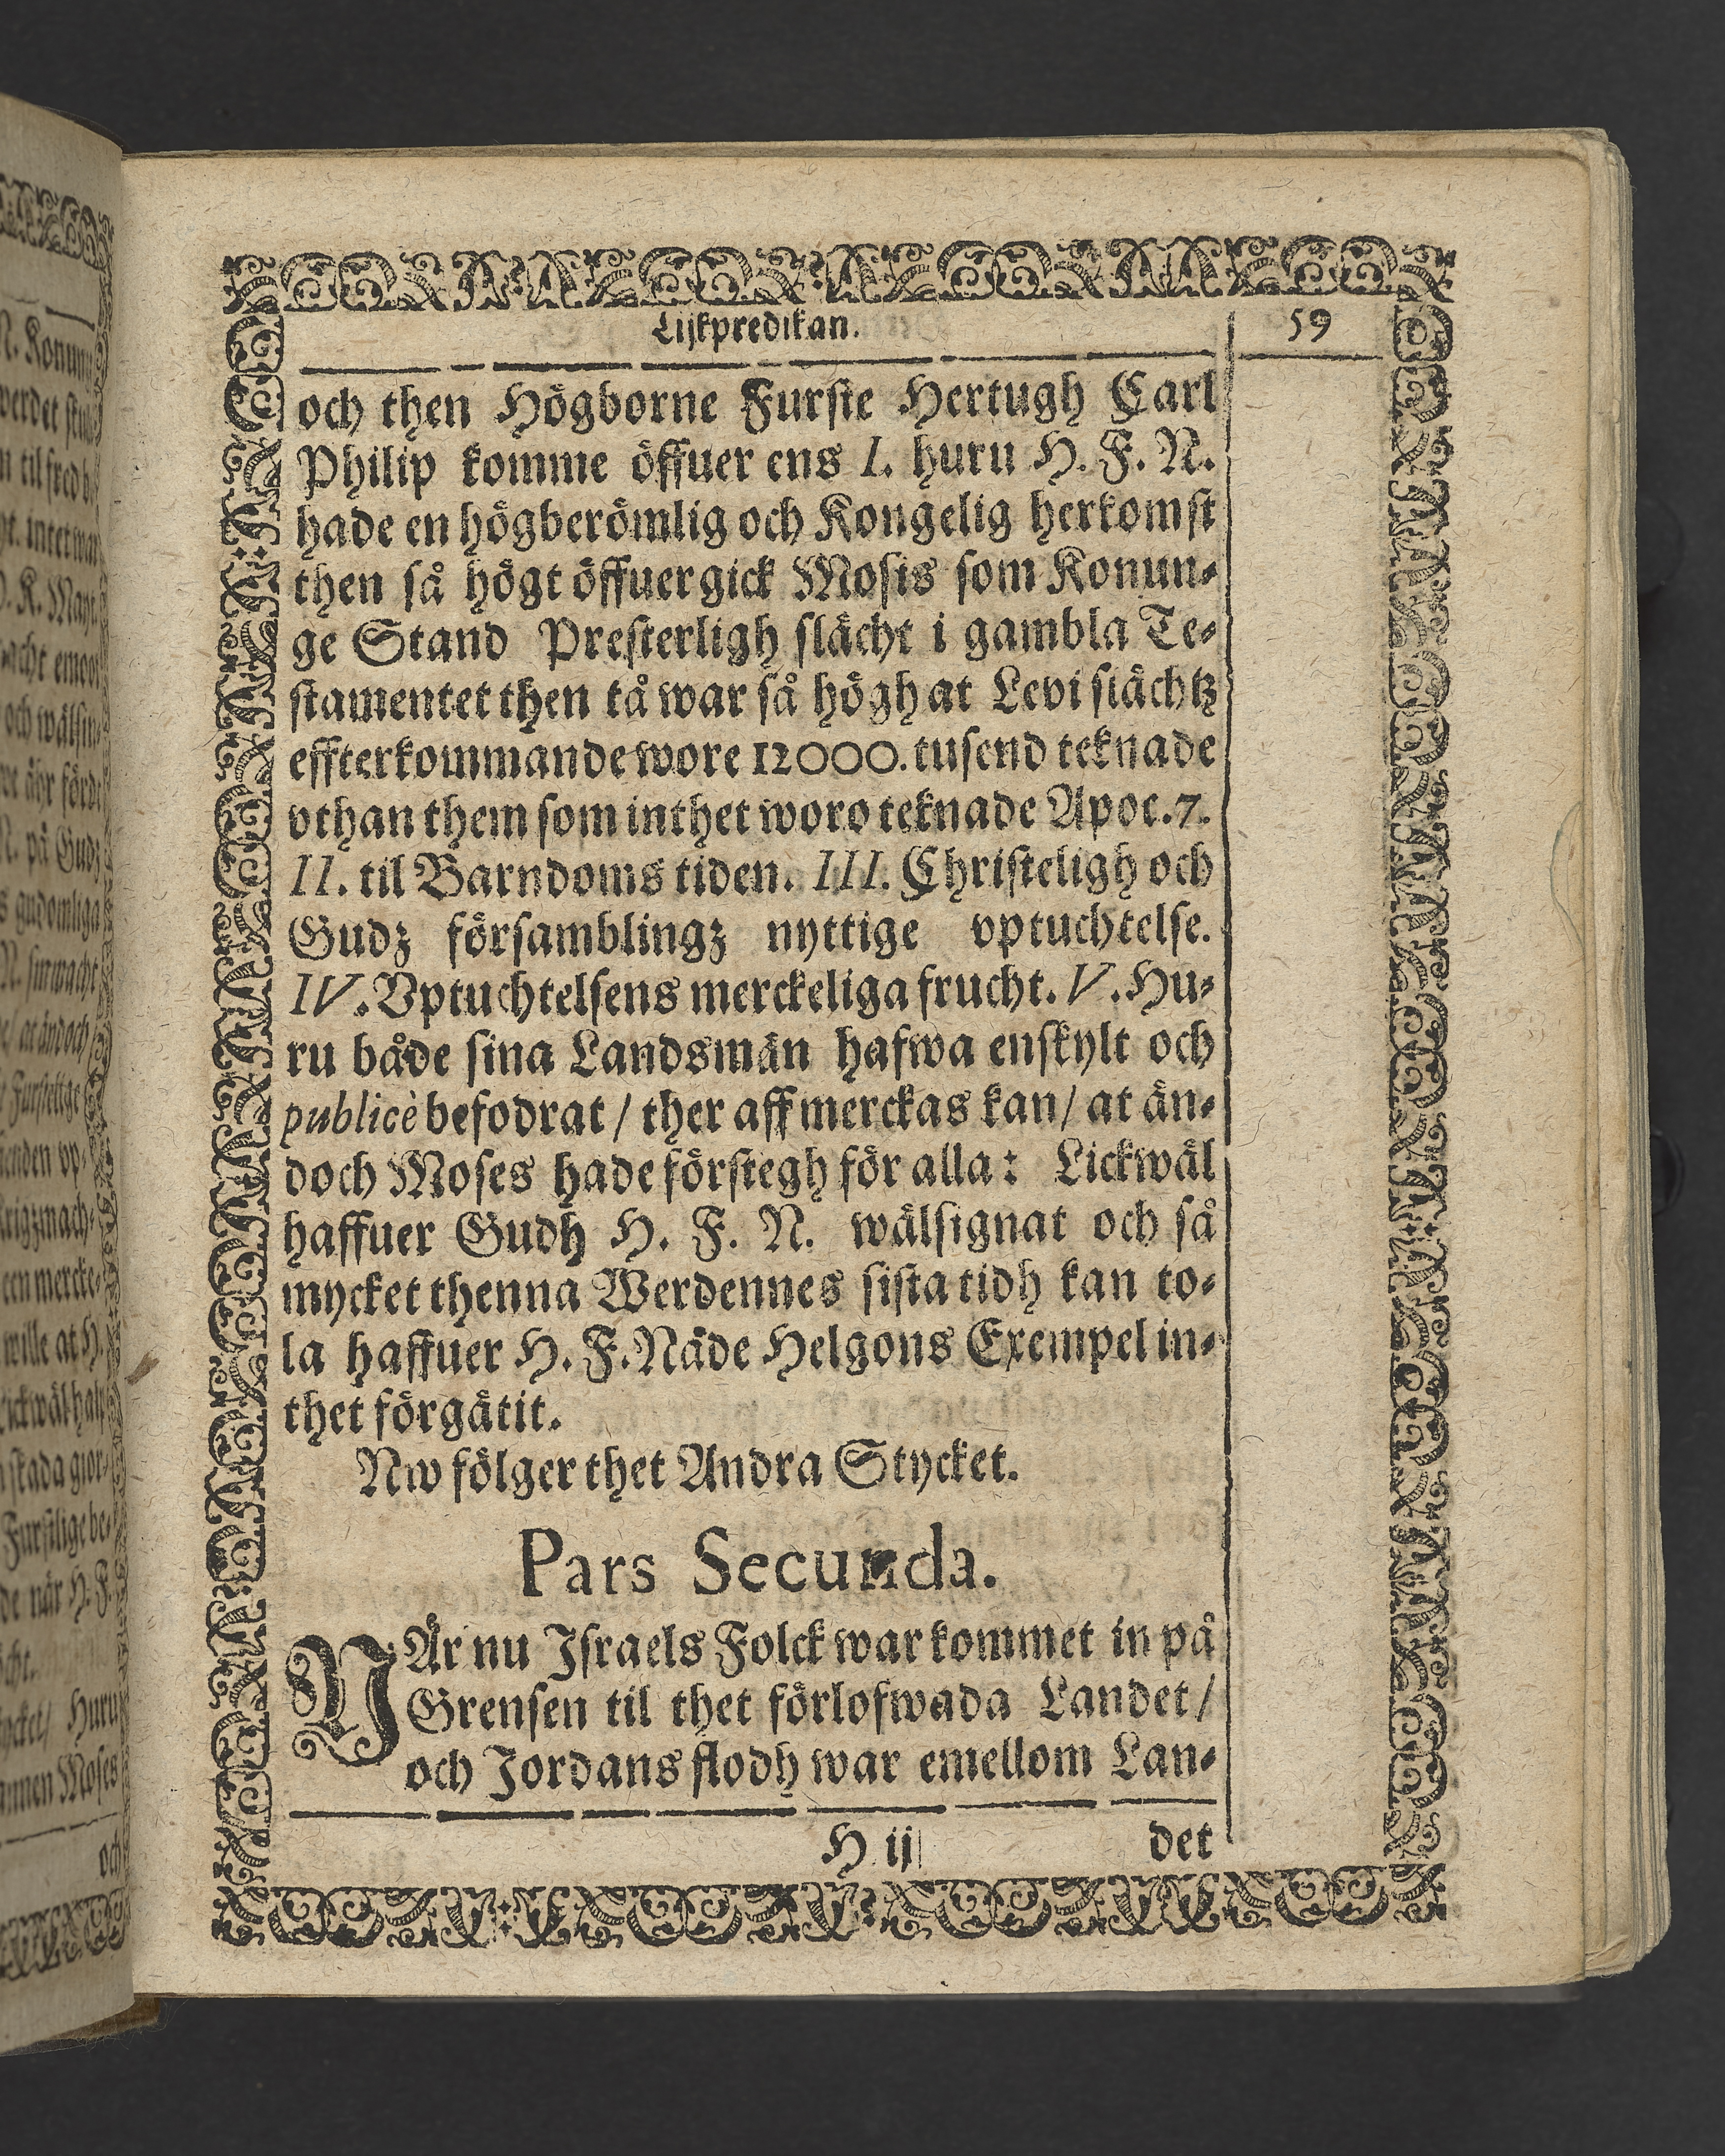 Lijkpredikan. 59
och then Högborne Furste Hertugh Carl
Philip komme öffuer ens I. huru H. F. N.
hade en högberömlig och Kongelig herkomst
then så högt öffuergick Mosis som Konun-
ge Stand Presterligh slächt i gambla Te-
stamentet then tå war så högh at Levi slächtz
effterkommande wore 12000. tusend teknade
vthan them som inthet woro teknade Apoc. 7.
II. til Barndoms tiden. III. Christeligh och
Gudz församblingz nyttige vptuchtelse.
IV. Vptuchtelsens merckeliga frucht. V. Hu-
ru både sina Landsmän hafwa enskylt och
publicè befodrat / ther aff merckas kan / at än-
doch Moses hade förstegh för alla: Lickwäl
haffuer Gudh H. F. N. wälsignat och så
mycket thenna Werdennes sista tidh kan to-
la haffuer H. F. Näde Helgons Exempel in-
thet förgätit.
Nw fölger thet Andra Stycket.
Pars Secunda.
NÄr nu Israels Folck war kommet in på
Grensen til thet förlofwada Landet /
och Jordans flodh war emellom Lan-
H ij det